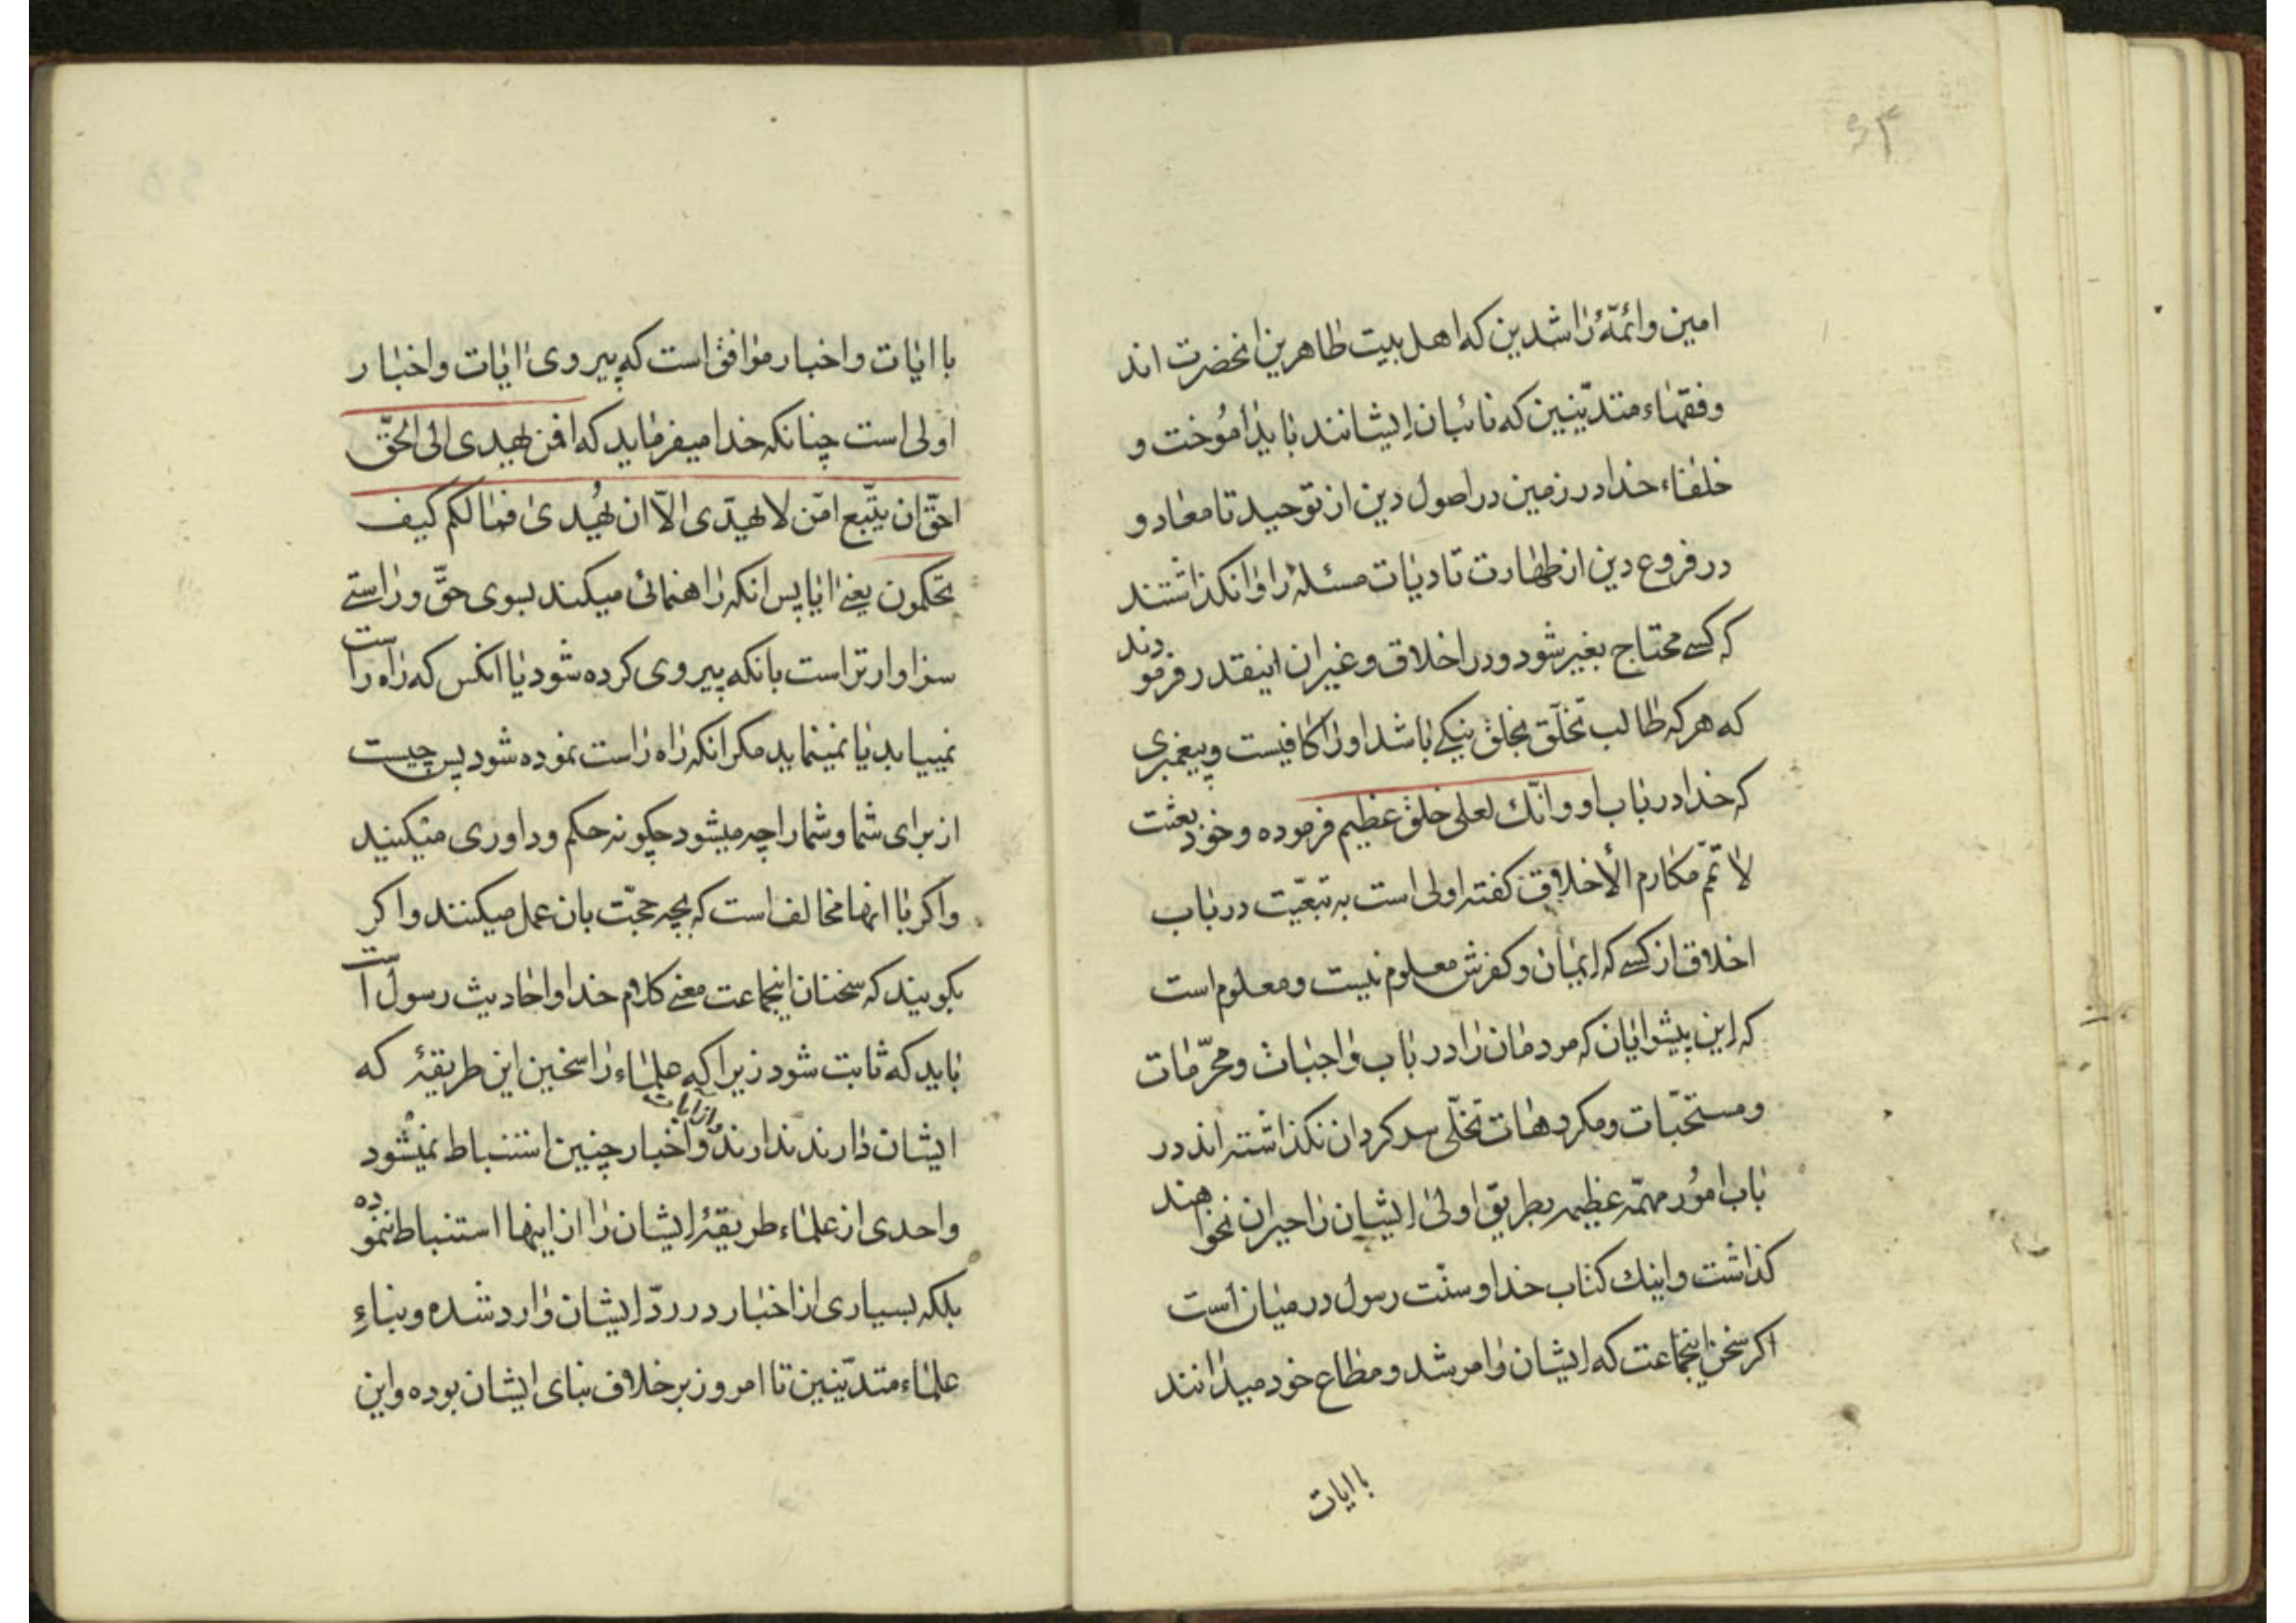 ۶۴
امین و ائمّهٔ راشدین که اهل بیت طاهرین انحضرت اند
و فقهاء متدیّنین که نائبان ایشانند باید اموخت و
خلفاء خدا در زمین در اصول دین از توحید تا معاد و
در فروع دین از طهارت تا دیات مسئلهٔ را وانکذاشتند
که کسے محتاج بغیر شود و در اخلاق و غیر ان اینقدر فرمودند
که هر که طالب تخلّق بخلق نیکے باشد او را کافیست و پیغمبری
که خدا در باب او و انّك لعلی خلق عظیم فرموده و خود بعثت
لاتمّم مکارم الأخلاق کفته اولی است به تبعیّت در باب
اخلاق از کسے که ایمان و کفرش معلوم نیست و معلوم است
که این پیشوایان که مردمان را در باب واجبات و محرّمات
و مستحبّات و مکروهات تخلّی سرکردان نکذاشته اند در
باب امور مهمّه عظیمه بطریق اولی ایشان را حیران نخواهند
کذاشت و اینك کتاب خدا و سنّت رسول در میان است
اکر سخن اینجماعت که ایشان وا مرشد و مطاع خود میدانند
با ایات
با ایات و اخبار موافق است که پیروی ایات و اخبار
اولی است چنانکه خدا میفرماید که افمن یهدی الی الحقّ
احقّ ان یتّبع امّن لا یهدّی الّا ان یُهدی فما لکم کیف
تحکمون یعنے ایا پس انکه راهنمائی میکند بسوی حقّ و راستے
سزاوارتر است بانکه پیروی کرده شود یا انکس که راه راست
نمییابد یا نمینماید مکر انکه راه راست نموده شود پس چیست
از برای شما و شما را چه میشود چکونه حکم و داوری میکنید
و اکر با انها مخالف است که بچه حجّت بان عمل میکنند و اکر
بکویند که سخنان اینجماعت معنے کلام خدا و احادیث رسول است
باید که ثابت شود زیرا که علماء راسخین این طریقهٔ که
ایشان دارند ندارند و از ایات و اخبار چنین استنباط نمیشود
و احدی از علماء طریقهٔ ایشان را از اینها استنباط ننموده
بلکه بسیاری از اخبار در ردّ ایشان وارد شده و بناءِ
علماء متدیّنین تا امروز بر خلاف بنای ایشان بوده و این